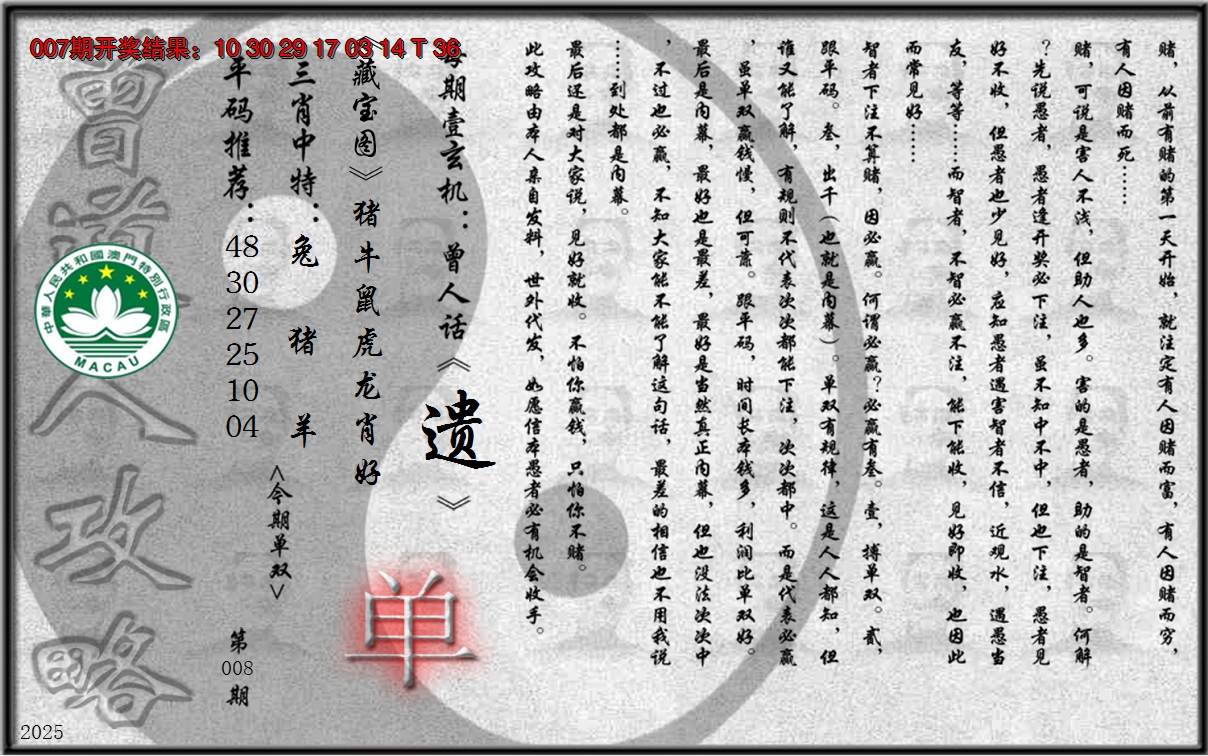 007期开奖结果：10 30 29 17 03 14 T 36
赌，从前有赌的第一天开始，就注定有人因赌而富，有人因赌而穷，
有人因赌而死……
赌，可说是害人不浅，但助人也多。害的是愚者，助的是智者。何解
？先说愚者，愚者逢开奖必下注，虽不知中不中，但也下注，愚者见
好不收，但愚者也少见好，应知愚者遇害智者不信，近观水，遇愚当
友，等等……而智者，不智必赢不注，能下能收，见好即收，也因此
而常见好……
智者下注不算赌，因必赢。何谓必赢？必赢有叁。壹，搏单双。贰，
跟平码。叁，出千（也就是内幕）。单双有规律，这是人人都知，但
谁又能了解，有规则不代表次次都能下注，次次都中。而是代表必赢
，虽单双赢钱慢，但可靠。跟平码，时间长本钱多，利润比单双好。
最后是内幕，最好也是最差，最好是当然真正内幕，但也没法次次中
，不过也必赢，不知大家能不能了解这句话，最差的相信也不用我说
……到处都是内幕。
最后还是对大家说，见好就收。不怕你赢钱，只怕你不赌。
此攻略由本人亲自发料，世外代发，如愿信本愚者必有机会收手。
每期壹玄机：曾人话《遗》
《藏宝图》猪牛鼠虎龙肖好
单
三肖中特：兔 猪 羊
<今期单双>
平码推荐：48 30 27 25 10 04
第008期
曾道人攻略
中華人民共和國澳門特別行政區
MACAU
2025